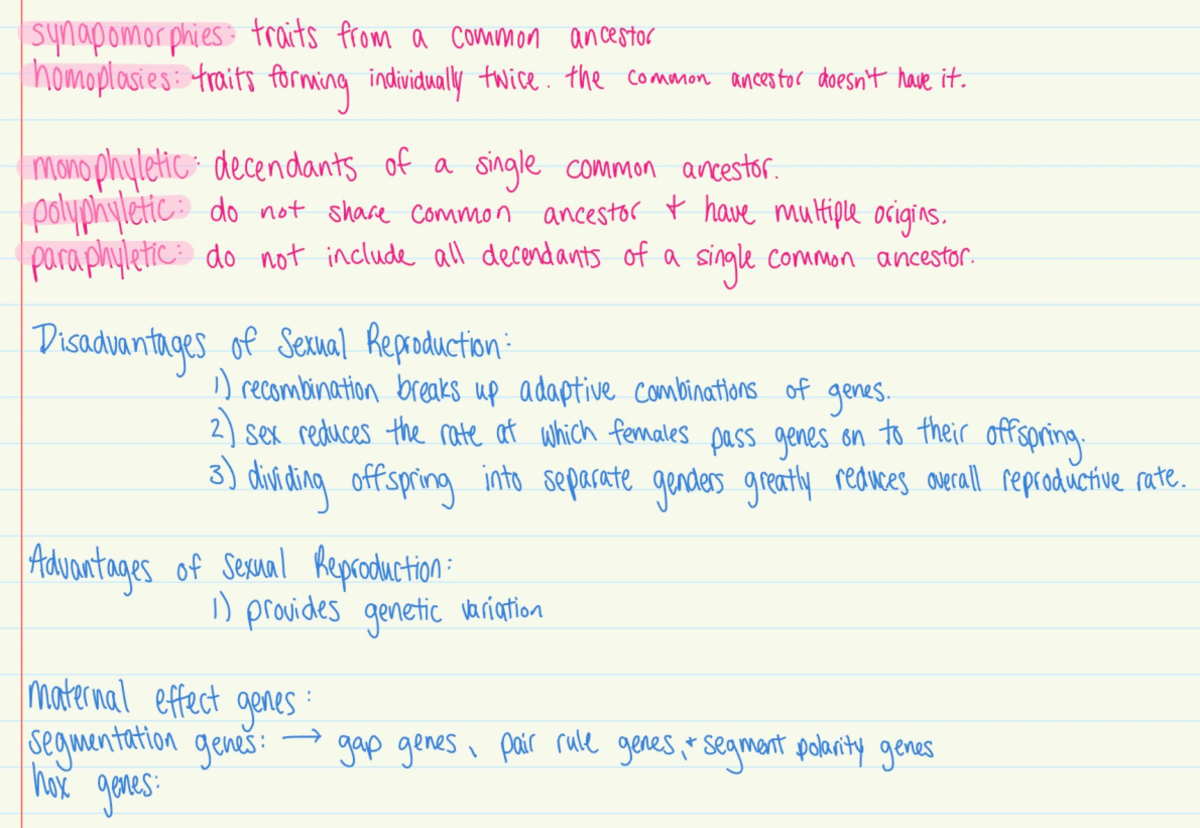 synapomorphies: traits from a common ancestor
homoplasies: traits forming individually twice. the common ancestor doesn't have it.
monophyletic: decendants of a single common ancestor.
polyphyletic: do not share common ancestor + have multiple origins.
paraphyletic: do not include all decendants of a single common ancestor.
Disadvantages of Sexual Reproduction:
1) recombination breaks up adaptive combinations of genes.
2) sex reduces the rate at which females pass genes on to their offspring.
3) dividing offspring into separate genders greatly reduces overall reproductive rate.
Advantages of Sexual Reproduction:
1) provides genetic variation
maternal effect genes:
segmentation genes: → gap genes, pair rule genes, + segment polarity genes
hox genes: